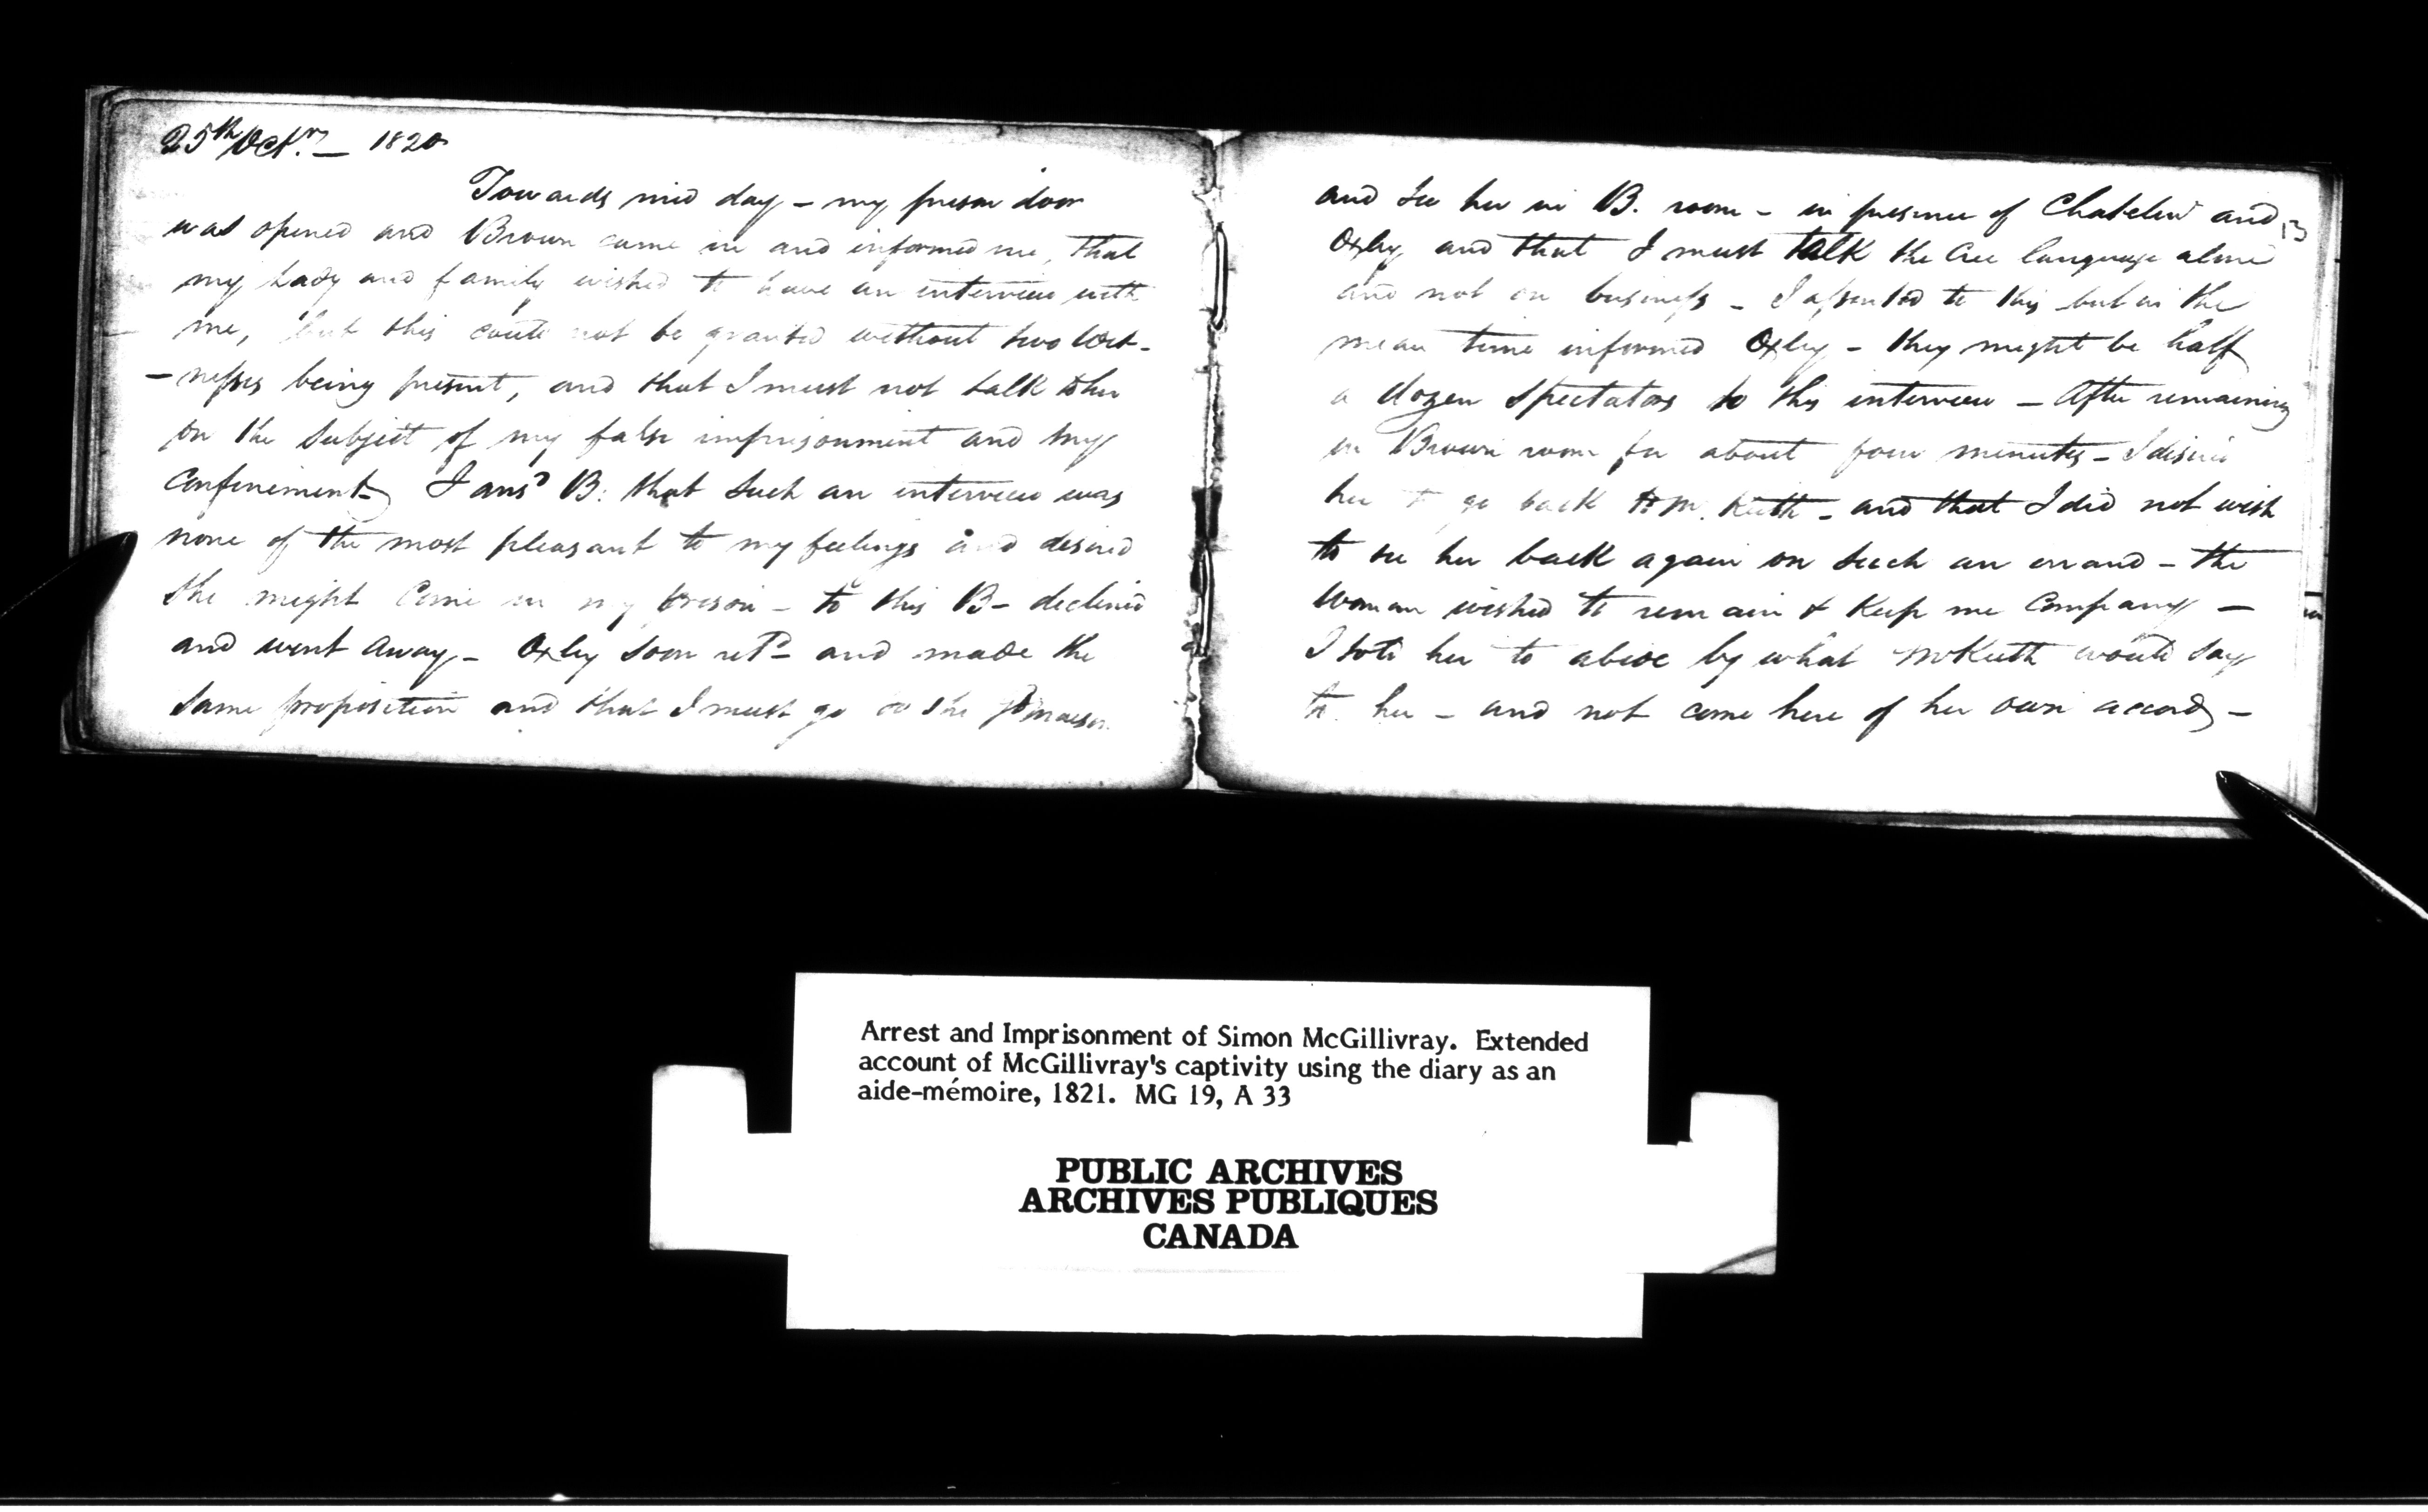 25th Octr. — 1820
Towards mid day – my prison door
was opened and Brown came in and informed me, that
my Lady and family wished to have an interview with
me, but this could not be granted without two wit-
-nesses being present, and that I must not talk to her
on the subject of my false imprisonment and my
Confinement I ansd B: that such an interview was
none of the most pleasant to my feelings and desired
she might come in my prison – to this B – declined
and went away – Oxley soon retd – and made the
same proposition and that I must go to the Gd maison
and see her in B. room – in presence of Chatelin and
13
Oxley and that I must talk the Cree language alone
and not on business – I assented to this but in the
mean time informed Oxley – they might be half
a dozen Spectators to this interview – After remaining
in Brown room for about four minutes – I desired
her to go back to Mr. Keith – and that I did not wish
to see her back again on such an errand – the
Woman wished to remain & keep me Company —
I told her to abide by what Mr Keith would say
to her – and not come here of her own accord –
Arrest and Imprisonment of Simon McGillivray. Extended
account of McGillivray's captivity using the diary as an
aide-mémoire, 1821. MG 19, A 33
PUBLIC ARCHIVES
ARCHIVES PUBLIQUES
CANADA